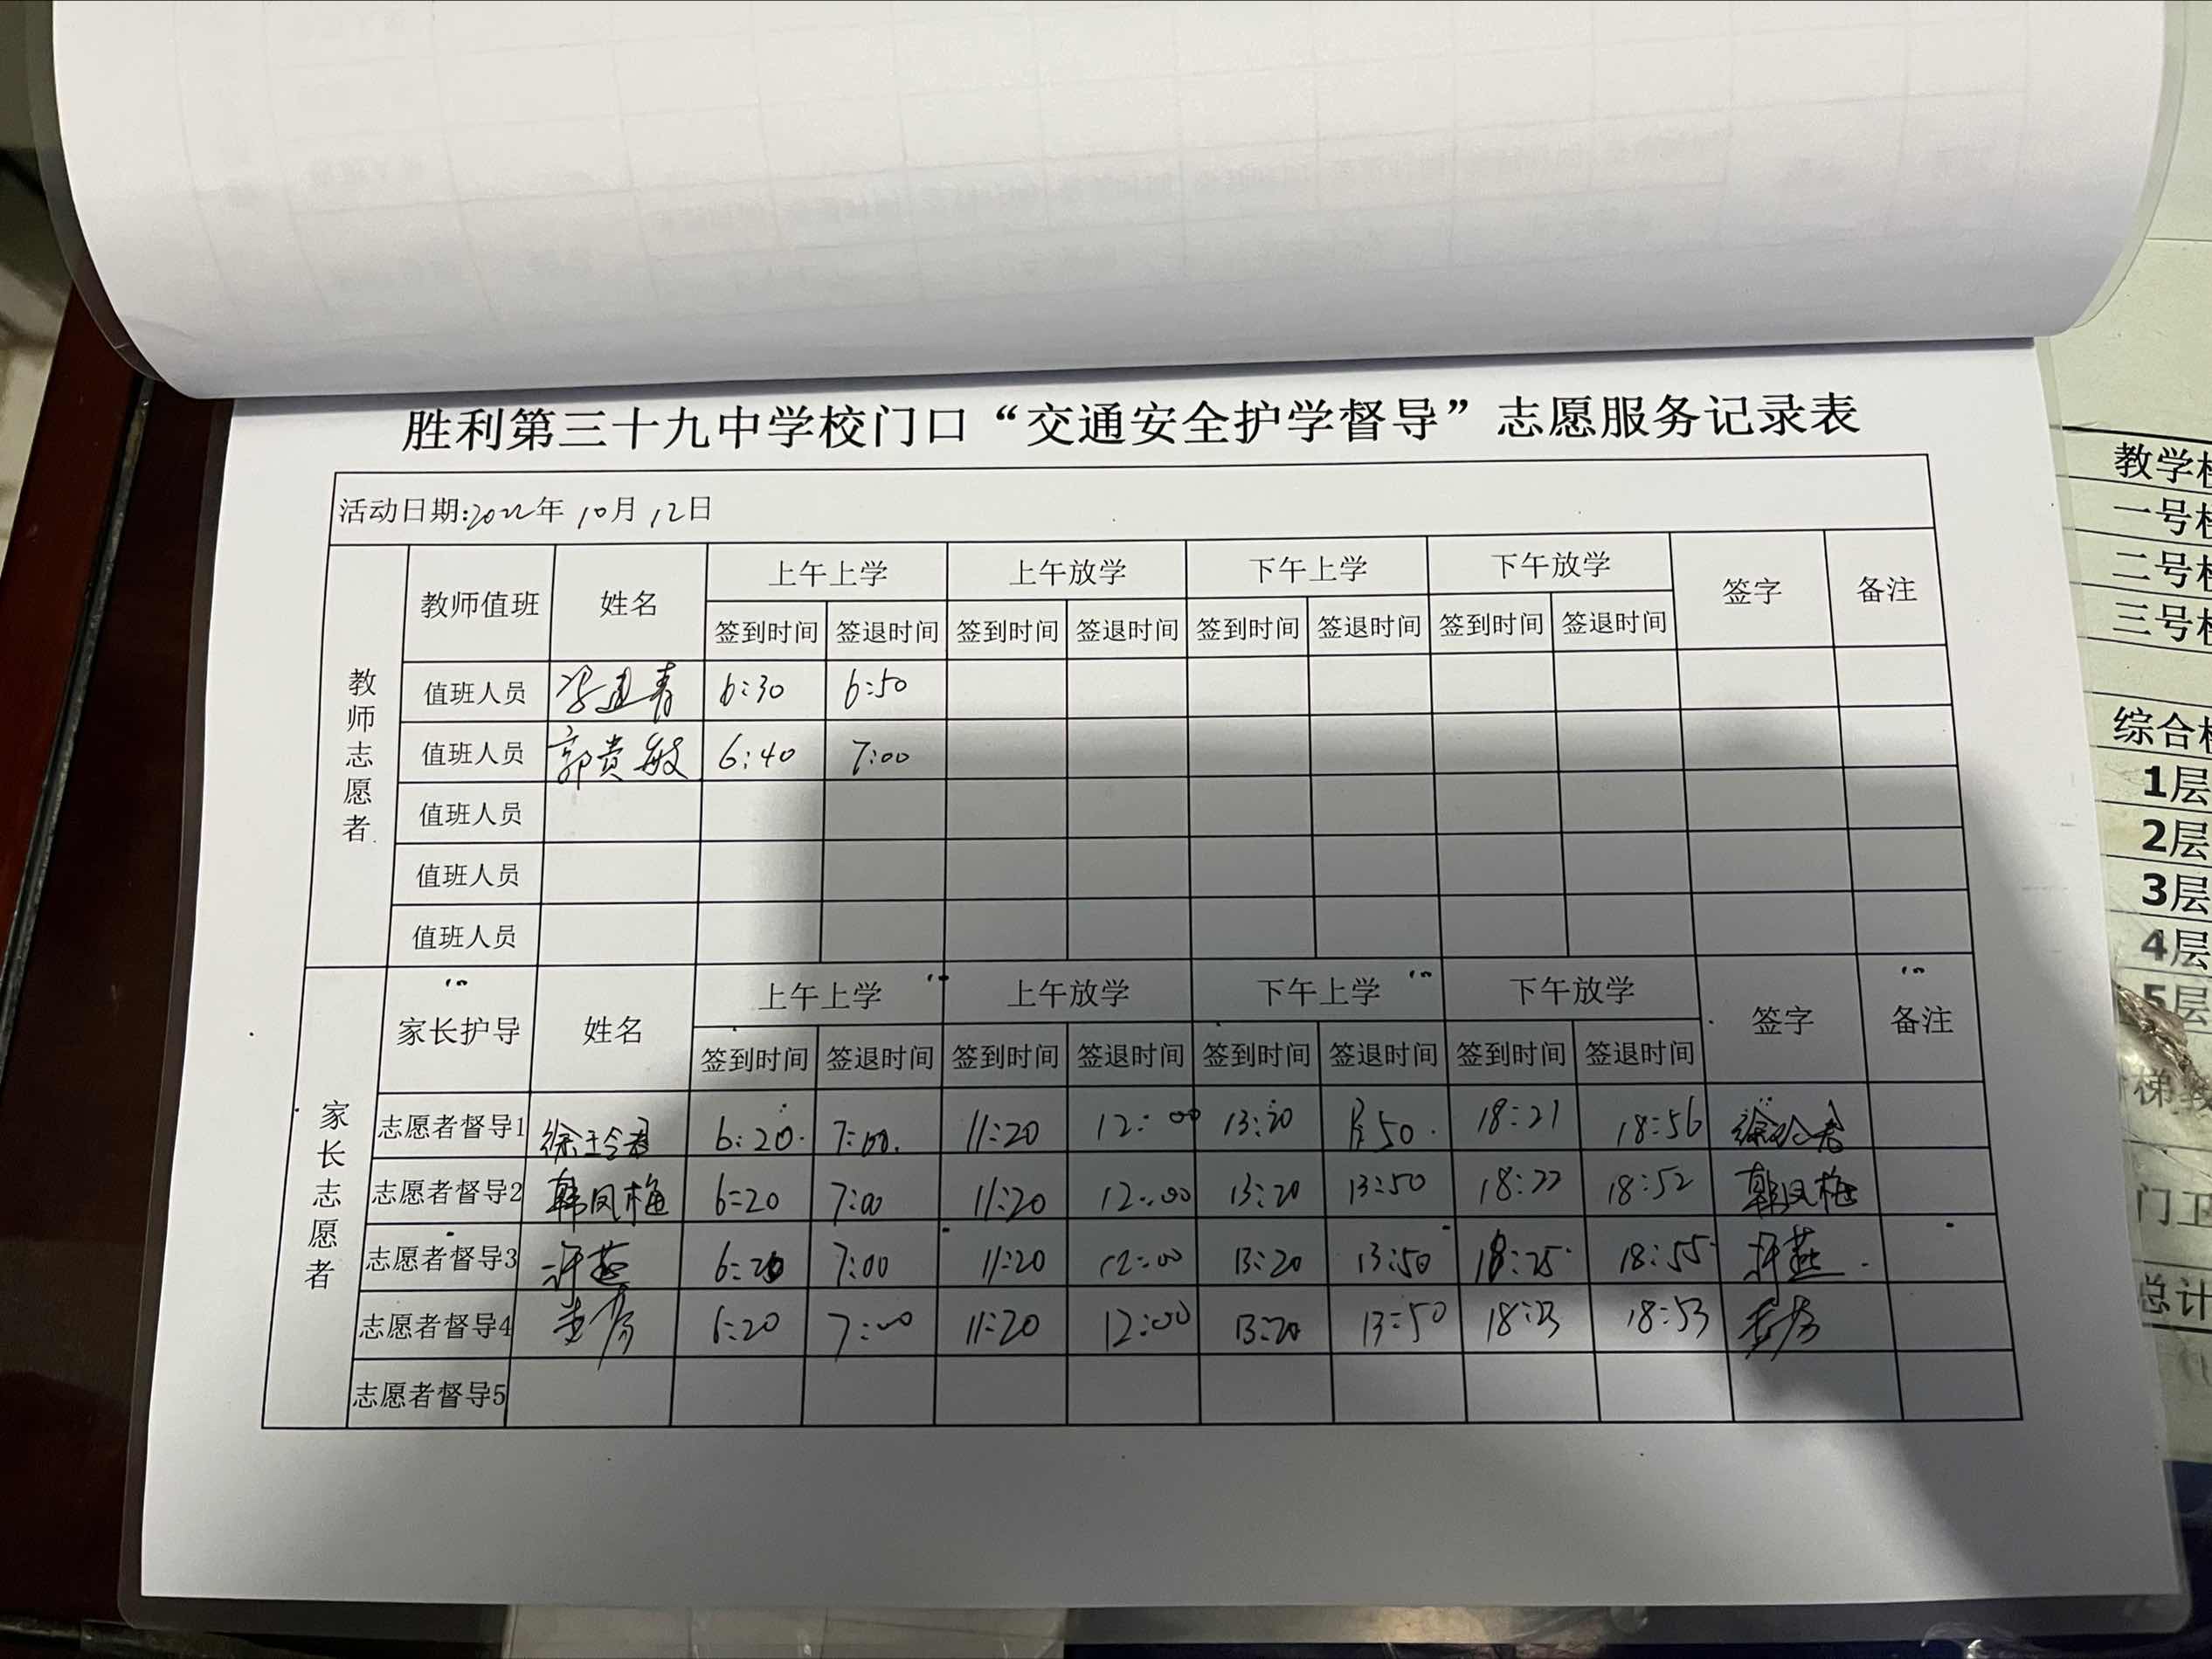 胜利第三十九中学校门口“交通安全护学督导”志愿服务记录表
活动日期:2022年 10月 12日
教师志愿者
教师值班 姓名 上午上学 上午放学 下午上学 下午放学 签字 备注
签到时间 签退时间 签到时间 签退时间 签到时间 签退时间 签到时间 签退时间
值班人员 6:30 6:50
值班人员 郭贵敏 6:40 7:00
值班人员
值班人员
值班人员
家长志愿者
家长护导 姓名 上午上学 上午放学 下午上学 下午放学 签字 备注
签到时间 签退时间 签到时间 签退时间 签到时间 签退时间 签到时间 签退时间
志愿者督导1 6:20 7:00 11:20 12:00 13:20 18:21 18:56
志愿者督导2 韩凤梅 6:20 7:00 11:20 12:00 13:20 13:50 18:22 18:52 韩凤梅
志愿者督导3 许燕 6:20 7:00 11:20 12:00 13:20 13:50 18:25 18:55 许燕
志愿者督导4 6:20 7:00 11:20 12:00 13:20 13:50 18:23 18:53
志愿者督导5
教学
一号
二号
三号
综合
1层
2层
3层
4层
5层
梯教
门卫
总计